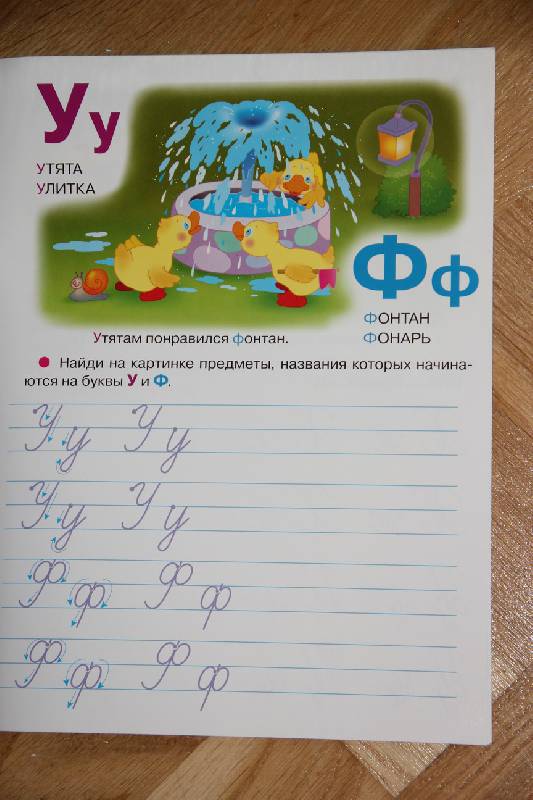 У у
УТЯТА
УЛИТКА
Ф ф
ФОНТАН
ФОНАРЬ
Утятам понравился фонтан.
Найди на картинке предметы, названия которых начина-
ются на буквы У и Ф.
У у У у
У у У у
Ф ф Ф ф
Ф ф Ф ф